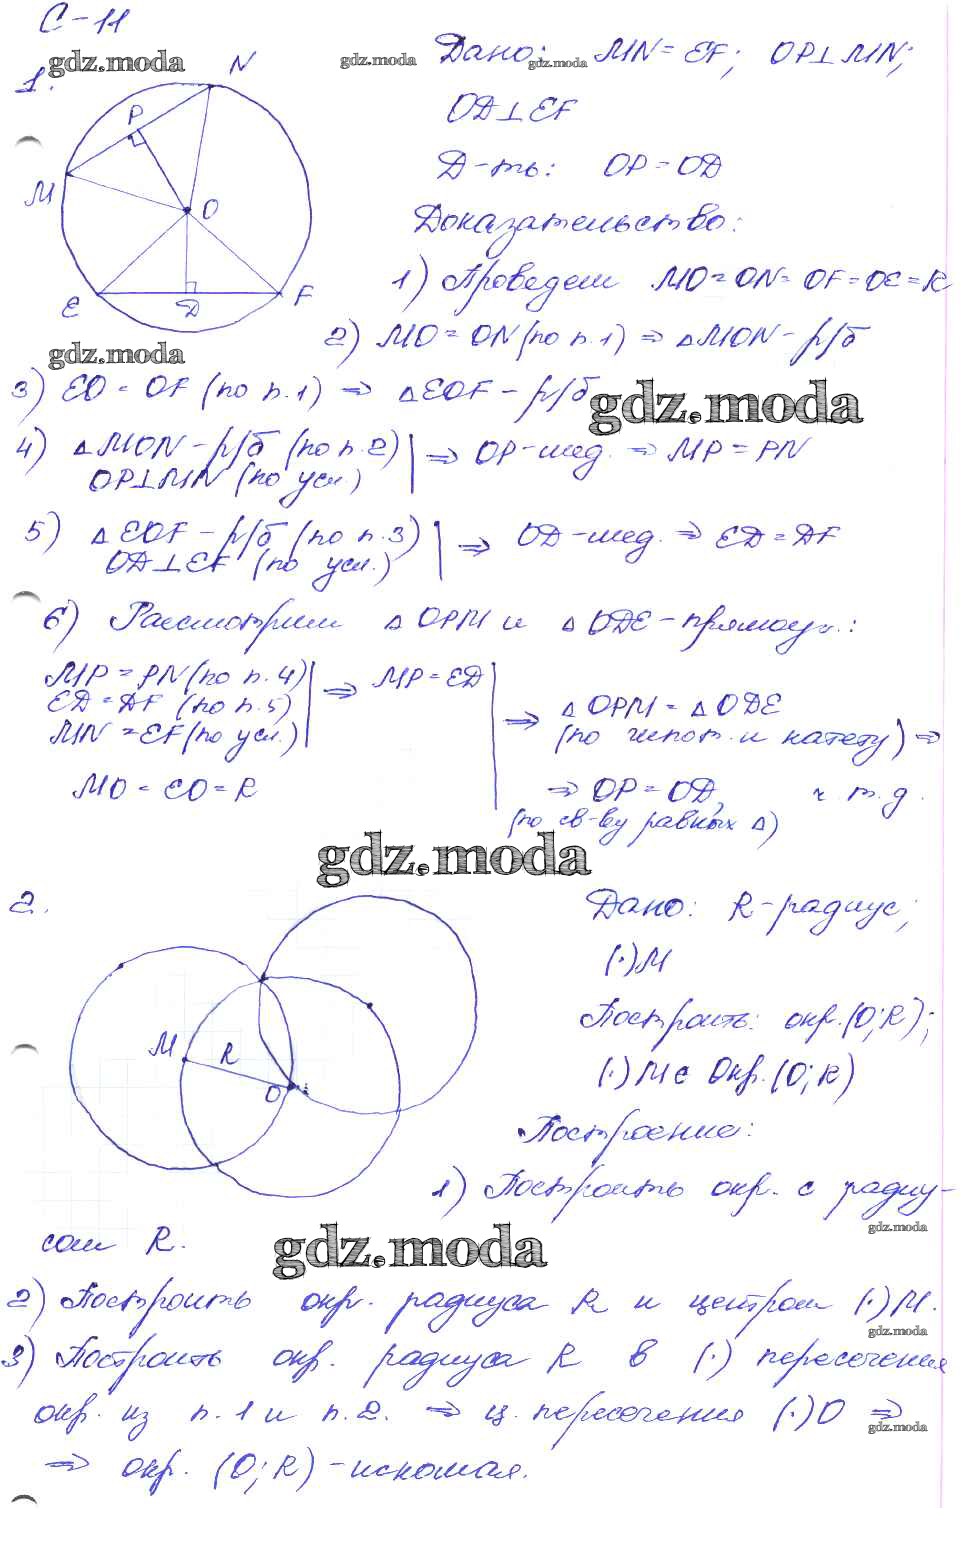 С-11
gdz.moda
1.
N
P
M
O
E
D
F
gdz.moda
gdz.moda
Дано: MN = EF; OP⊥MN;
gdz.moda
OD⊥EF
Д-ть: OP = OD
Доказательство:
1) Проведем MO = ON = OF = OE = R
2) MO = ON (по п.1) ⇒ △MON - р/б
3) EO = OF (по п.1) ⇒ △EOF - р/б
gdz.moda
4) △MON - р/б (по п.2) | ⇒ OP - мед. ⇒ MP = PN
OP⊥MN (по усл.)
5) △EOF - р/б (по п.3) | ⇒ OD - мед. ⇒ ED = DF
OD⊥EF (по усл.)
6) Рассмотрим △OPM и △ODE - прямоуг.:
MP = PN (по п.4) | ⇒ MP = ED
ED = DF (по п.5)
MN = EF (по усл.)
MO = EO = R
⇒ △OPM = △ODE
(по гипот. и катету) ⇒
⇒ OP = OD, ч.т.д.
(по св-ву равных △)
gdz.moda
2.
M
R
O
Дано: R - радиус;
(·)M
Построить: окр.(O;R);
(·)M ∈ Окр.(O;R)
Построение:
1) Построить окр. с радиу-
gdz.moda
сом R.
gdz.moda
2) Построить окр. радиуса R и центром (·)M.
gdz.moda
3) Построить окр. радиуса R в (·) пересечения
окр. из п.1 и п.2. ⇒ ц. пересечения (·)O ⇒
gdz.moda
⇒ окр. (O;R) - искомая.